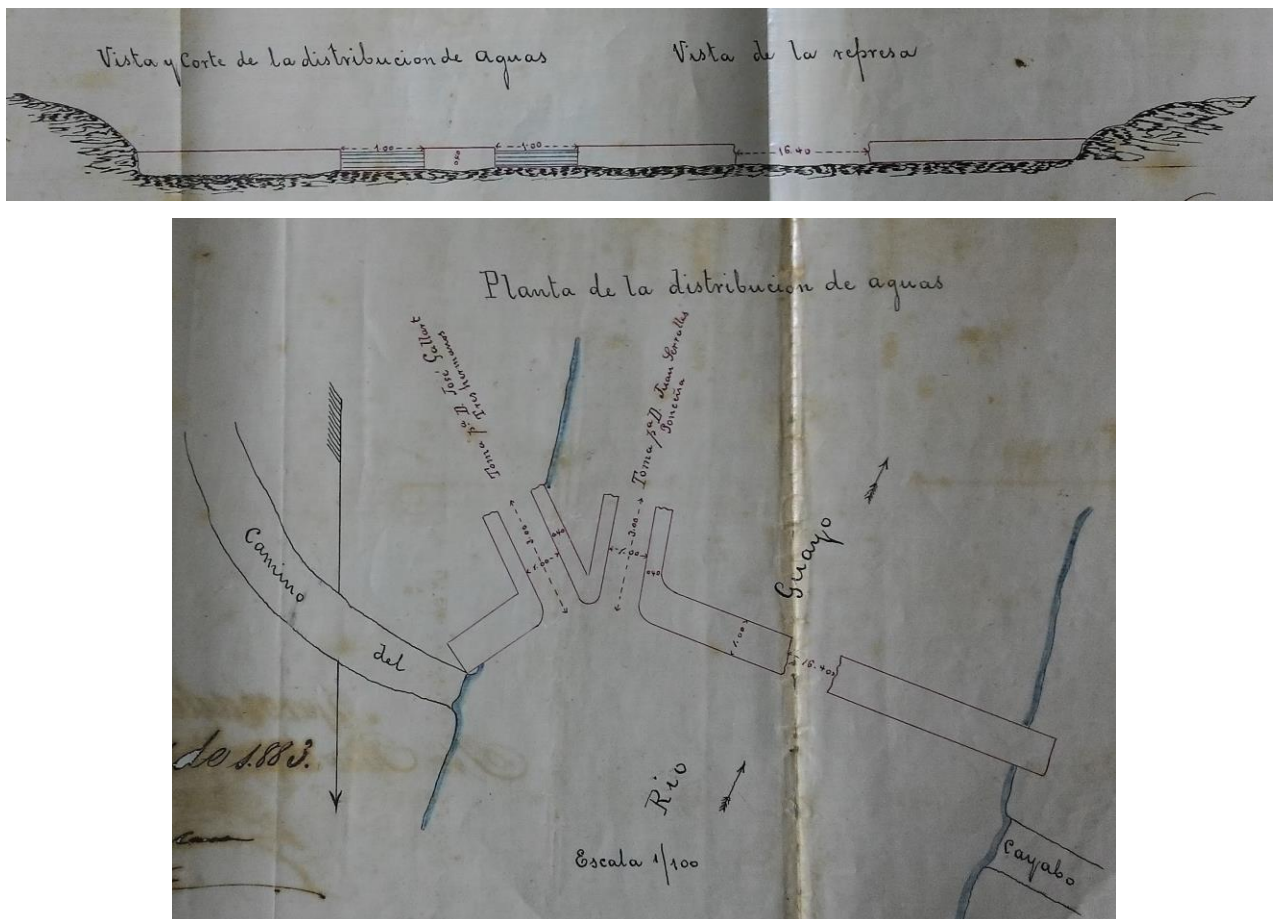 Vista y Corte de la distribucion de aguas
Vista de la represa
1.00
0.50
1.00
16.40
Planta de la distribucion de aguas
Toma pª D. José Gallart
Tres hermanos
Toma pª D. Juan Serrallés
Ponceña
2.00
1.00
0.40
2.00
1.00
0.40
1.00
16.40
Camino
del
Guayo
Rio
de 1.883.
Escala 1/100
Cayabo